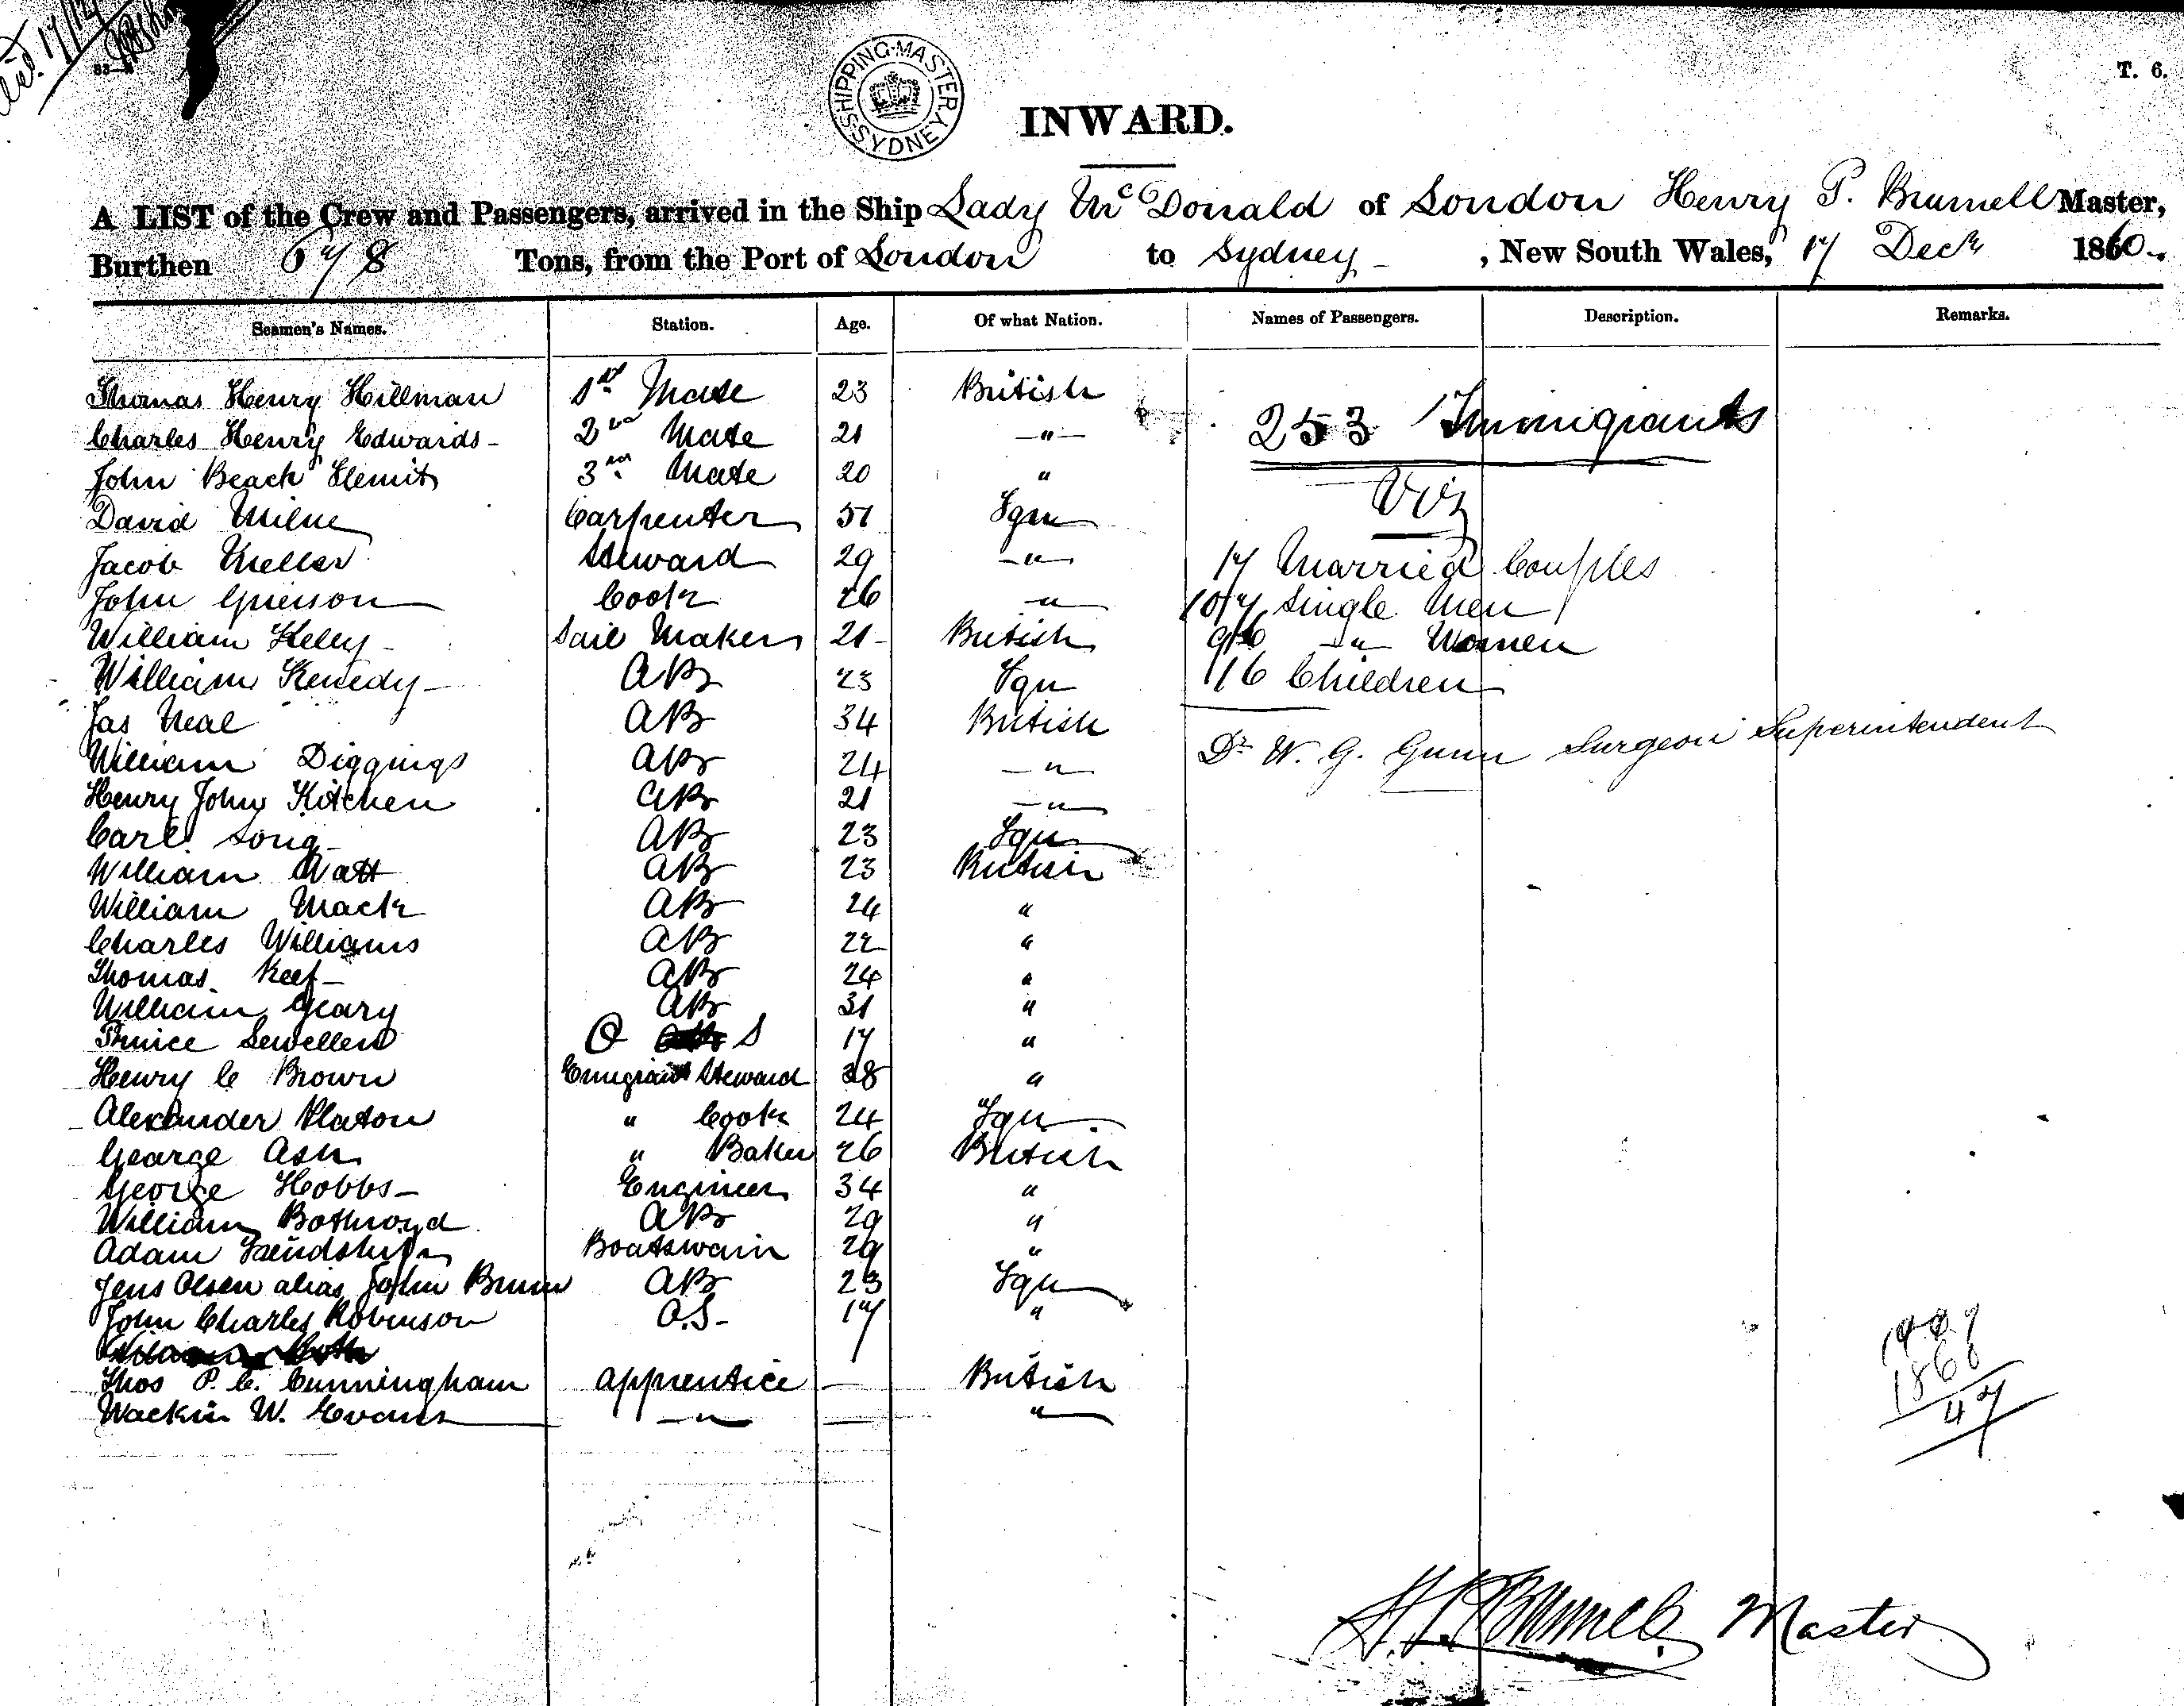 T. 6.
SHIPPING MASTER SYDNEY
INWARD.
A LIST of the Crew and Passengers, arrived in the Ship Lady McDonald of London Henry P. Brumell Master,
Burthen 678 Tons, from the Port of London to Sydney , New South Wales, 17 Decr 1860.
Seamen's Names. Station. Age. Of what Nation. Names of Passengers. Description. Remarks.
Thomas Henry Hillman 1st Mate 23 British
Charles Henry Edwards 2nd Mate 21 "
253 Immigrants
John Beach 3rd Mate 20 "
Viz
David Milne Carpenter 51 Fgn
Jacob Meller Steward 29 "
17 Married Couples
John Grierson Cook 26 "
107 Single Men
William Kelly Sail Maker 21 British
" Women
William Kenedy AB 23 Fgn
16 Children
Jas Neal AB 34 British
Dr W. G. Gunn Surgeon Superintendent
William Diggings AB 24 "
Henry John Kitchen AB 21 "
Carl Long AB 23 Fgn
William Watt AB 23 British
William Mack AB 24 "
Charles Williams AB 22 "
Thomas Keef AB 24 "
William Geary AB 31 "
O S 17 "
Henry C Brown Emigrant Steward 38 "
Alexander Platon " Cook 24 Fgn
George Ash " Baker 26 British
George Hobbs Engineer 34 "
William Bothroyd AB 29 "
Adam Friendship Boatswain 29 "
Jens Olsen alias John Brown AB 23 Fgn
John Charles Robinson O.S. 17 "
Thos P. C. Cunningham apprentice British
W. Evans " "
1860
47
H. P. Brumell Master